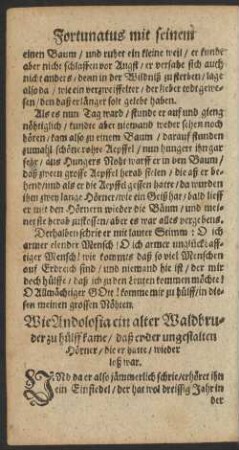 Fortunatus mit seinem
einen Baum / und ruhet ein kleine weil / er kunde
aber nicht schlaffen vor Angst / er versahe sich auch
nicht anders / denn in der Wildniß zu sterben / lage
also da / wie ein verzweiffelter / der lieber todt gewe-
sen / den daß er länger solt gelebt haben.
Als es nun Tag ward / stunde er auff und gieng
nöhtiglich / kundte aber niemand weder sehen noch
hören / kam also zu einem Baum / darauf stunden
zumahl schöne rohte Aepffel / nun hungert ihn gar
sehr / aus Hungers Noht warff er in den Baum /
daß zween grosse Aepffel herab fielen / die aß er be-
hend / und als er die Aepffel gessen hatte / da wurden
ihm zwey lange Hörner / wie ein Geiß hat / bald lieff
er mit den Hörnern wieder die Bäum / und mei-
net sie herab zustossen / aber es war alles vergebens.
Derhalben schrie er mit lauter Stimm: O ich
armer elender Mensch! O ich armer unglückhaff-
tiger Mensch! wie kommts daß so viel Menschen
auf Erdreich sind / und niemand hie ist / der mir
doch hülffe / daß ich zu den Leuten kommen möchte!
O Allmächtiger GOtt! komme mir zu hülff / in die-
sen meinen grossen Nöhten.
Wie Andolosia ein alter Waldbru-
der zu hülff kame / daß er der ungestalten
Hörner / die er hatte / wieder
loß war.
UNd da er also jämmerlich schrie / erhöret ihn
ein Einsiedel / der hat wol dreissig Jahr in
der